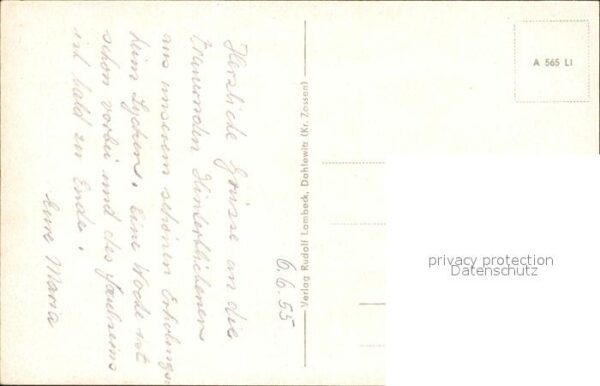 6.6.55
Herzliche Grüsse an die
trauernden Hinterbliebenen
aus unserem schönen Erholungs-
heim Lychen. Eine Woche ist
schon vorbei und das
ist bald zu Ende!
Eure Maria
Verlag Rudolf Lambeck, Dahlewitz (Kr. Zossen)
A 565 LI
privacy protection
Datenschutz